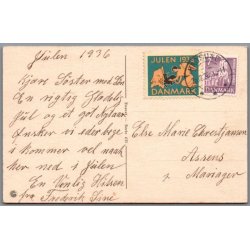 Julen 1936
Kjære Søster med Søn
En rigtig Glædelig
Jul og et got Nytaar
Ønsker vi eder bege
i kommer vel nok
her ned i Julen
En Venlig Hilsen
fra Frederik
JULEN 1936
DANMARK
DANMARK
Else Marie Christjansen
Assens
Mariager